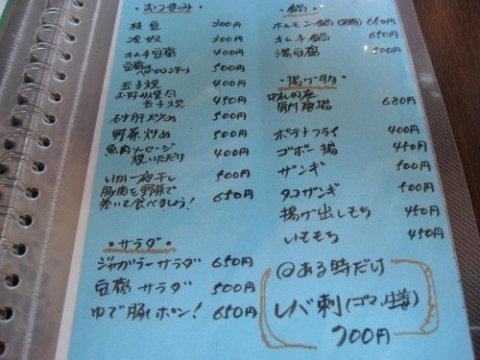 ・おつまみ・
枝豆 300円
冷奴 300円
キムチ豆腐 400円
豆腐の
ペペロンチーノ 500円
玉子焼 400円
お好み焼だ!
玉子焼 450円
砂肝炒め 500円
野菜炒め 500円
魚肉ソーセージ
焼いただけ 400円
いか一夜干し 500円
豚肉を野菜で
巻いて食べましょう! 650円
・サラダ・
ジャガラーサラダ 650円
豆腐サラダ 500円
ゆで豚しポン! 650円
・鍋・
ホルモン鍋 650円
キムチ鍋 650円
湯豆腐 500円
・揚げ物・
中札内産
680円
ポテトフライ 400円
ゴボー揚 450円
ザンギ 500円
タコザンギ 500円
揚げ出しもち 450円
いももち 450円
@ある時だけ
レバ刺(ゴマ、生姜)
700円